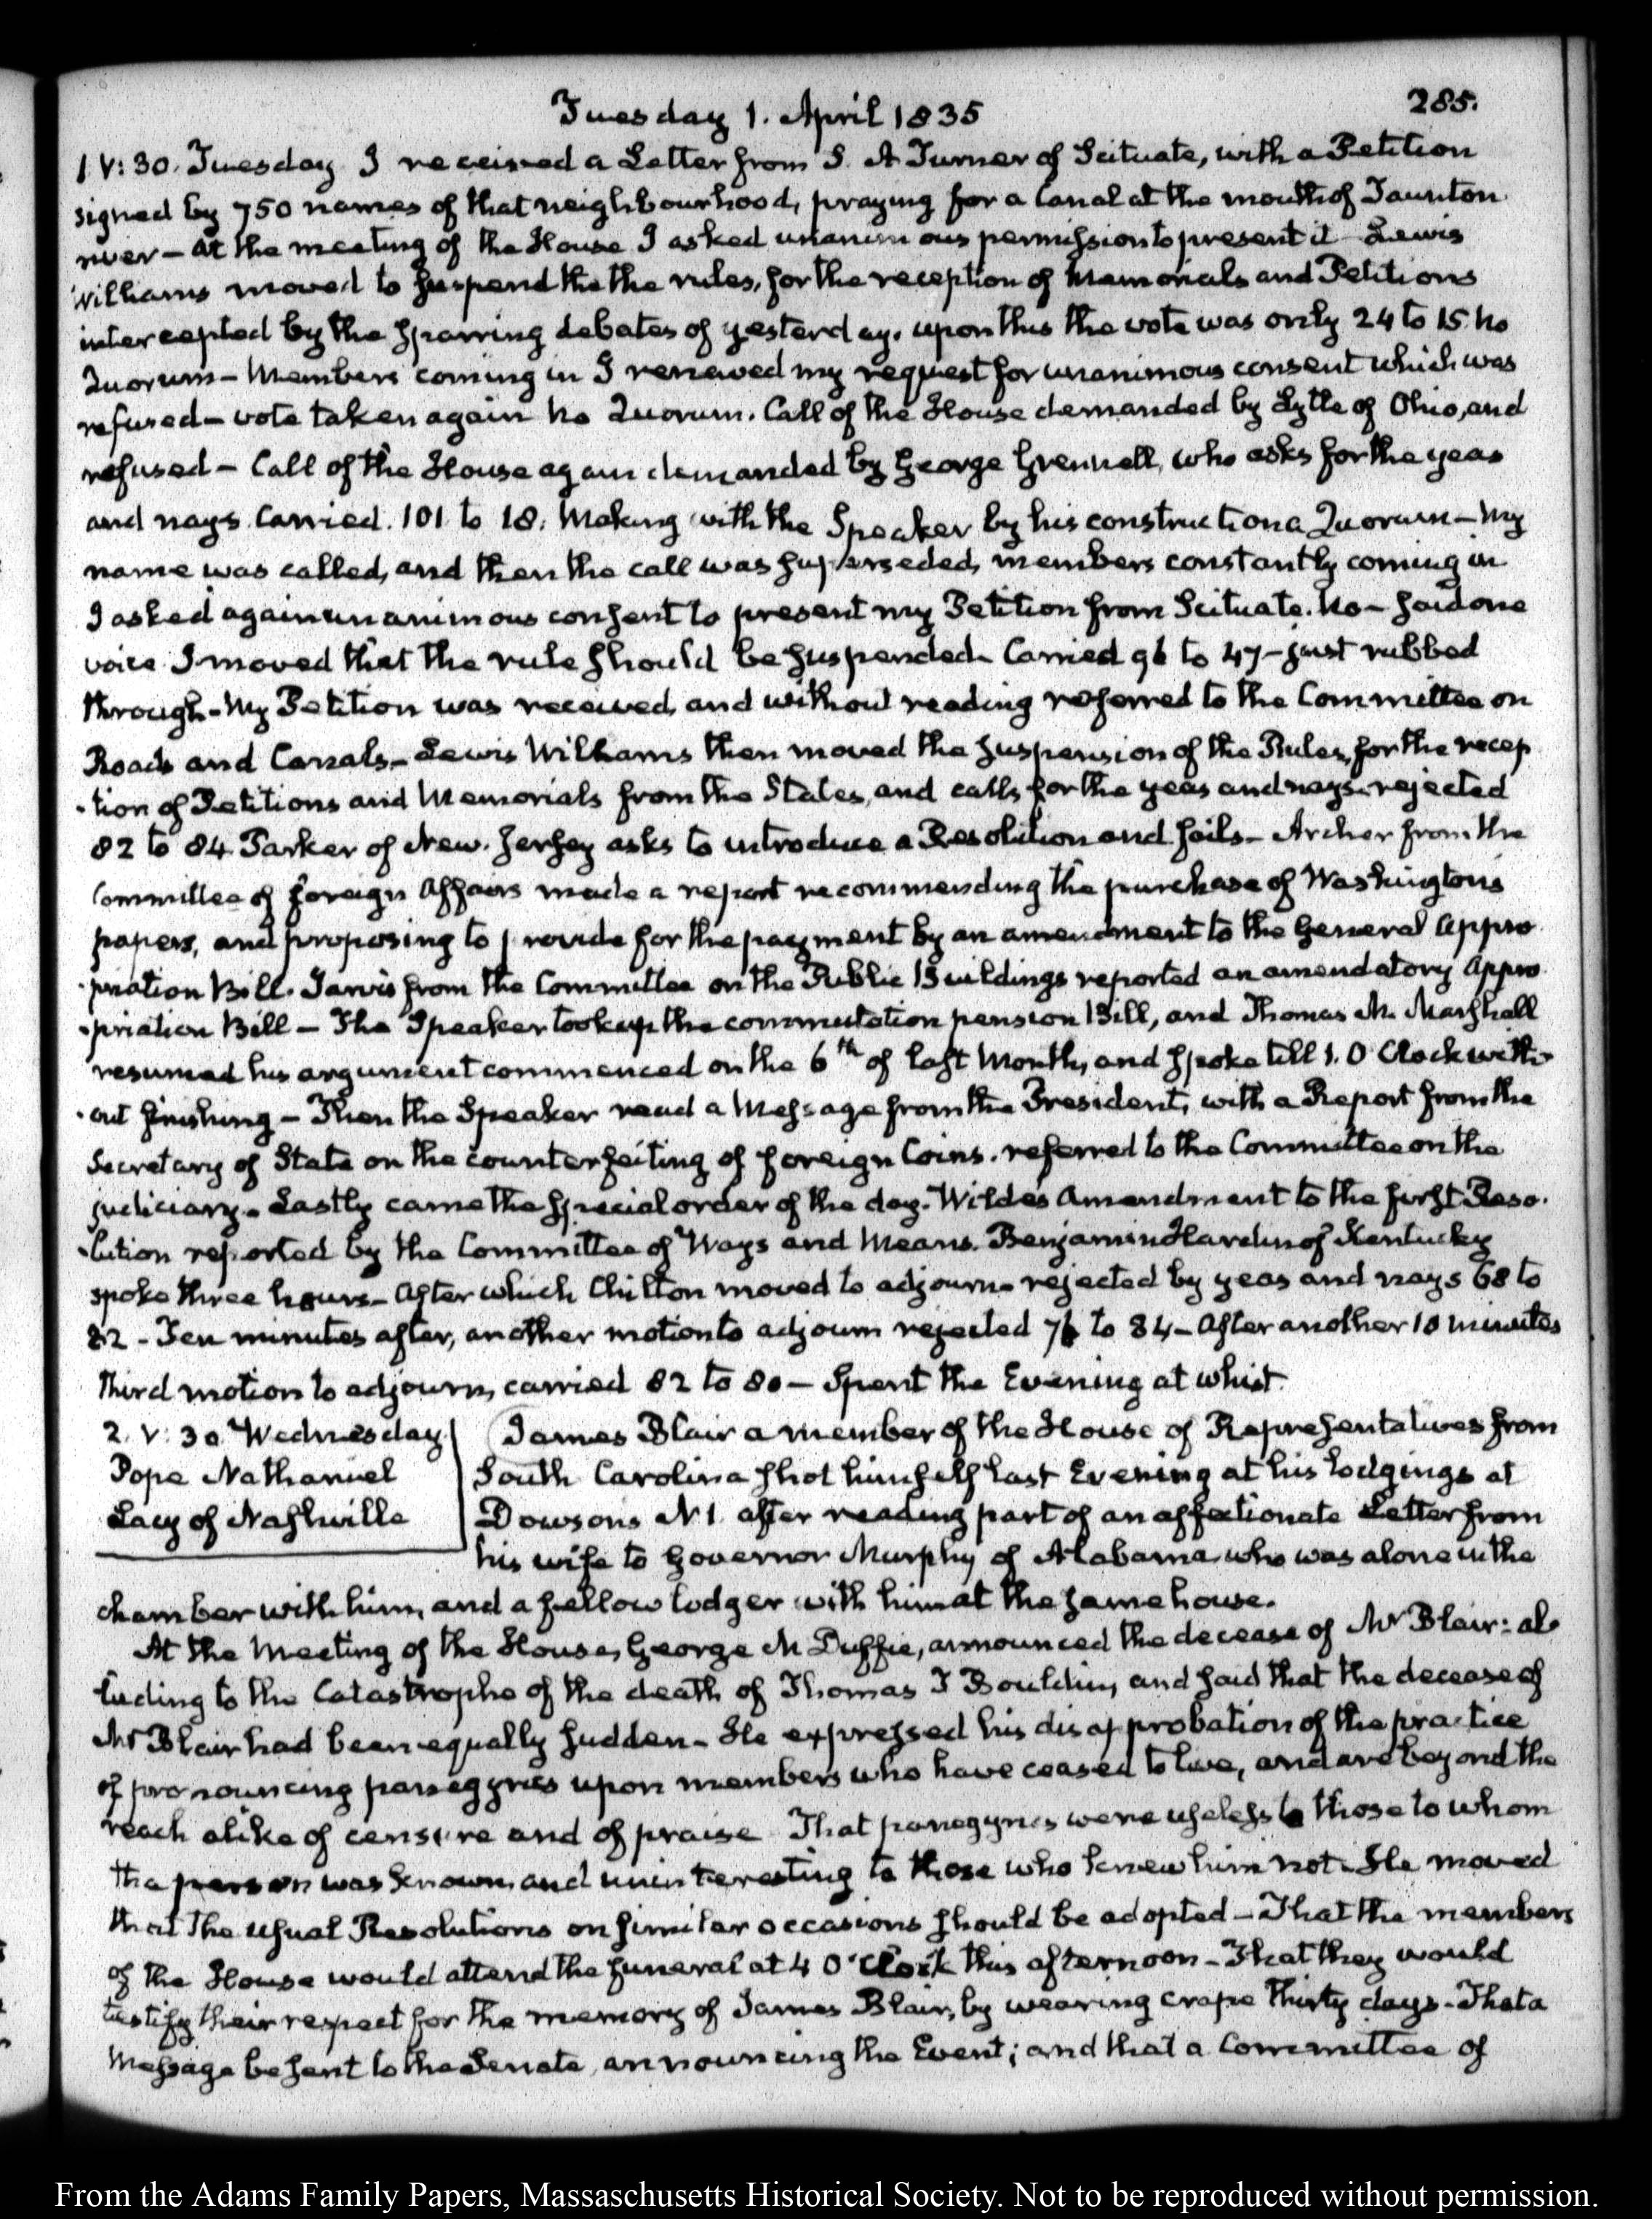 Tuesday 1. April 1835
285.
1. V: 30. Tuesday I received a Letter from S. A Turner of Scituate, with a Petition
signed by 750 names of that neighbourhood, praying for a Canal at the mouth of Taunton
river — At the meeting of the House I asked unanimous permission to present it — Lewis
Williams moved to suspend the the rules, for the reception of Memorials and Petitions
intercepted by the sparring debates of yesterday. upon this the vote was only 24 to 15. No
Quorum — Members coming in I renewed my request for unanimous consent which was
refused — vote taken again No Quorum. Call of the House demanded by Lytle of Ohio, and
refused — Call of the House again demanded by George Grennell, who asks for the yeas
and nays. Carried. 101 to 18. Making with the Speaker by his construction a Quorum — My
name was called, and then the call was superseded, members constantly coming in
I asked again unanimous consent to present my Petition from Scituate. No — said one
voice. I moved that the rule should be suspended. Carried 96 to 47 — just rubbed
through — My Petition was received, and without reading referred to the Committee on
Roads and Canals — Lewis Williams then moved the suspension of the Rules, for the recep
-tion of Petitions and Memorials from the States, and calls for the yeas and nays. rejected
82 to 84. Parker of New-Jersey asks to introduce a Resolution and fails — Archer from the
Committee of foreign Affairs made a report recommending the purchase of Washington's
papers, and proposing to provide for the payment by an amendment to the General Appro
-priation Bill. Jarvis from the Committee on the Public Buildings reported an amendatory Appro
-priation Bill — The Speaker took up the commutation pension Bill, and Thomas M. Marshall
resumed his argument commenced on the 6th of last Month, and spoke till 1. O'Clock with-
-out finishing — Then the Speaker read a Message from the President, with a Report from the
Secretary of State on the counterfeiting of foreign Coins. referred to the Committee on the
judiciary — Lastly came the special order of the day. Wilde's Amendment to the first Reso-
-lution reported by the Committee of Ways and Means. Benjamin Hardin of Kentucky
spoke three hours — After which Chilton moved to adjourn — rejected by yeas and nays 68 to
82 — Ten minutes after, another motion to adjourn rejected 76 to 84 — After another 10 minutes
third motion to adjourn, carried 82 to 80 — Spent the Evening at whist.
2. V: 30. Wednesday
Pope Nathaniel
Lacy of Nashville
James Blair a member of the House of Representatives from
South Carolina shot himself last Evening at his lodgings at
Dowson's N 1. after reading part of an affectionate Letter from
his wife to Governor Murphy of Alabama who was alone in the
chamber with him, and a fellow lodger with him at the same house.
At the Meeting of the House, George McDuffie, announced the decease of Mr Blair: al-
luding to the Catastrophe of the death of Thomas T Bouldin, and said that the decease of
Mr Blair had been equally sudden — He expressed his disapprobation of the practice
of pronouncing panegyrics upon members who have ceased to live, and are beyond the
reach alike of censure and of praise. That panegyrics were useless to those to whom
the person was known, and uninteresting to those who knew him not. He moved
that the usual Resolutions on similar occasions should be adopted — That the members
of the House would attend the funeral at 4 O'Clock this afternoon — That they would
testify their respect for the memory of James Blair, by wearing crape thirty days — That a
Message be sent to the Senate, announcing the Event; and that a Committee of
From the Adams Family Papers, Massachusetts Historical Society. Not to be reproduced without permission.